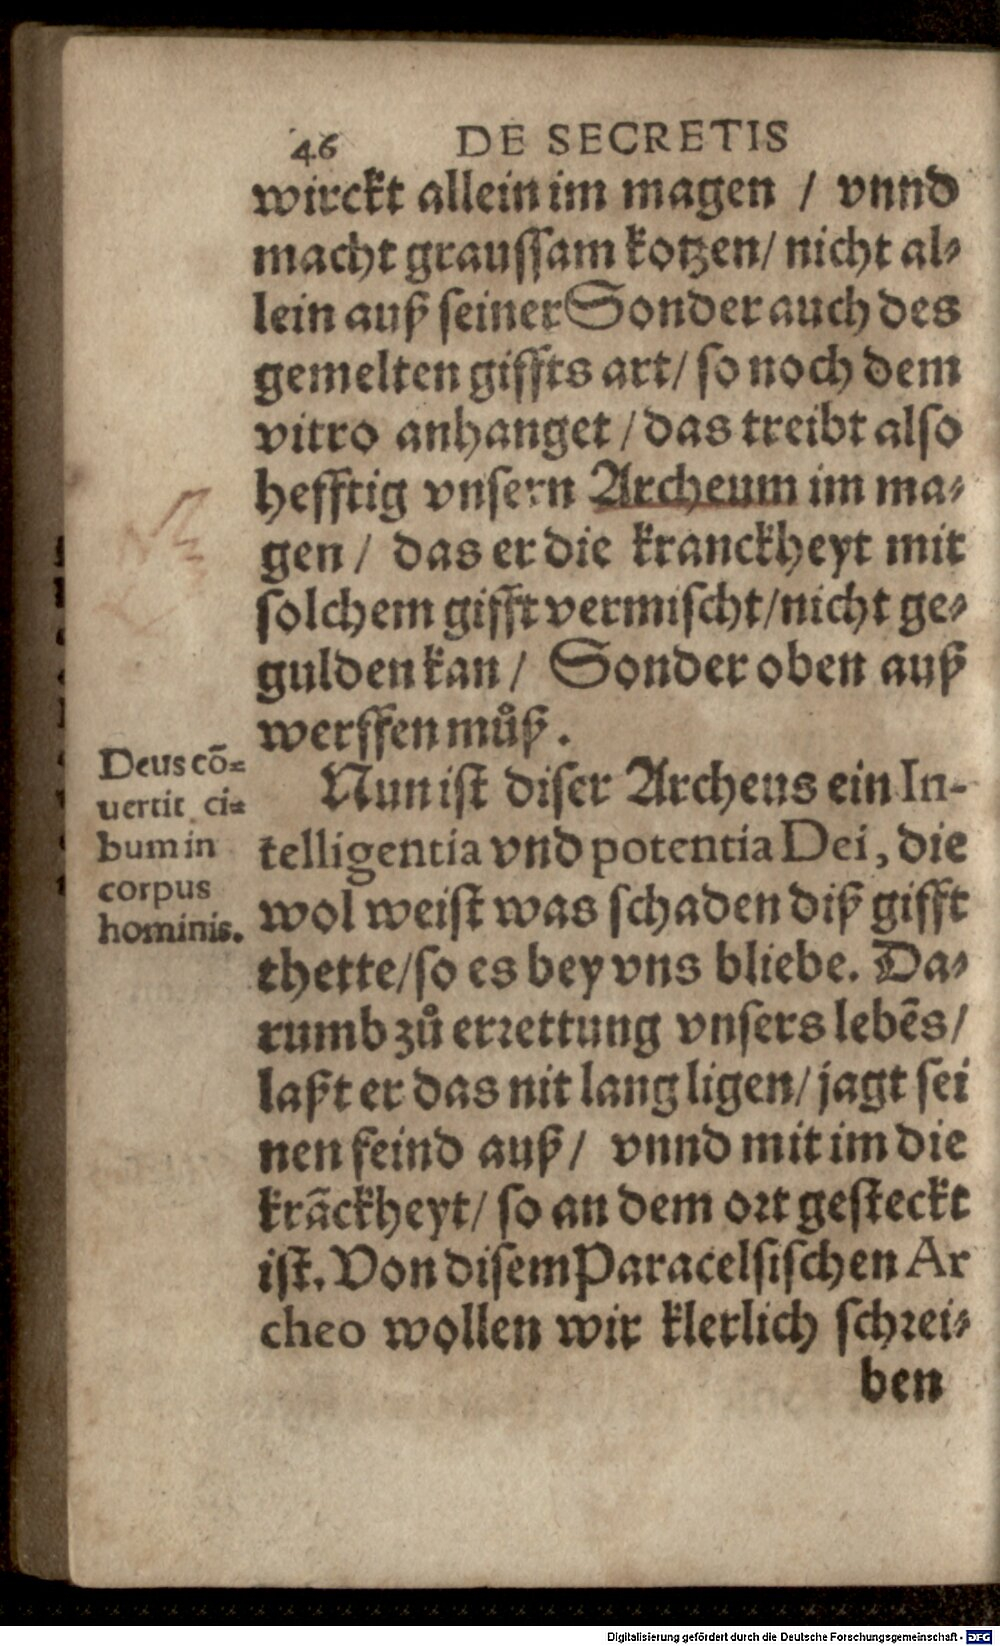 46 DE SECRETIS
wirckt allein im magen / vnnd
macht graussam kotzen/ nicht al⸗
lein auß seiner Sonder auch des
gemelten giffts art/ so noch dem
vitro anhanget / das treibt also
hefftig vnsern Archeum im ma⸗
gen / das er die kranckheyt mit
solchem gifft vermischt/nicht ge⸗
gulden kan / Sonder oben auß
werffen můß.
Deus cō⸗
uertit ci⸗
bum in
corpus
hominis.
Nun ist diser Archeus ein In-
telligentia vnd potentia Dei, die
wol weist was schaden diß gifft
thette/so es bey vns bliebe. Da⸗
rumb zů errettung vnsers lebēs/
laßt er das nit lang ligen/ jagt sei
nen feind auß / vnnd mit im die
krāckheyt/ so an dem ort gesteckt
ist. Von disem Paracelsischen Ar
cheo wollen wir klerlich schrei⸗
ben
Digitalisierung gefördert durch die Deutsche Forschungsgemeinschaft - DFG